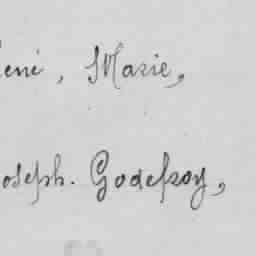 ené, Marie,
oseph. Godefroy,